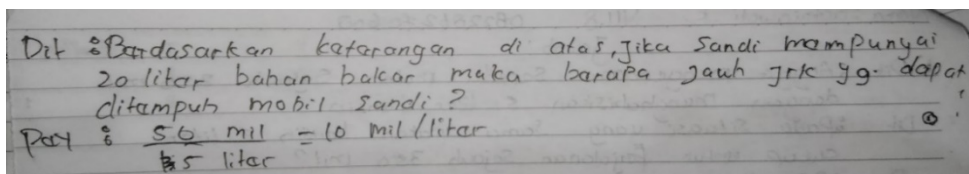 Dit : Bardasarkan katarangan di atas, Jika Sandi mampunyai
20 litar bahan bakar maka barapa Jauh Jrk yg. dapat
ditampuh mobil Sandi?
50 mil = 10 mil/litar
5 litar